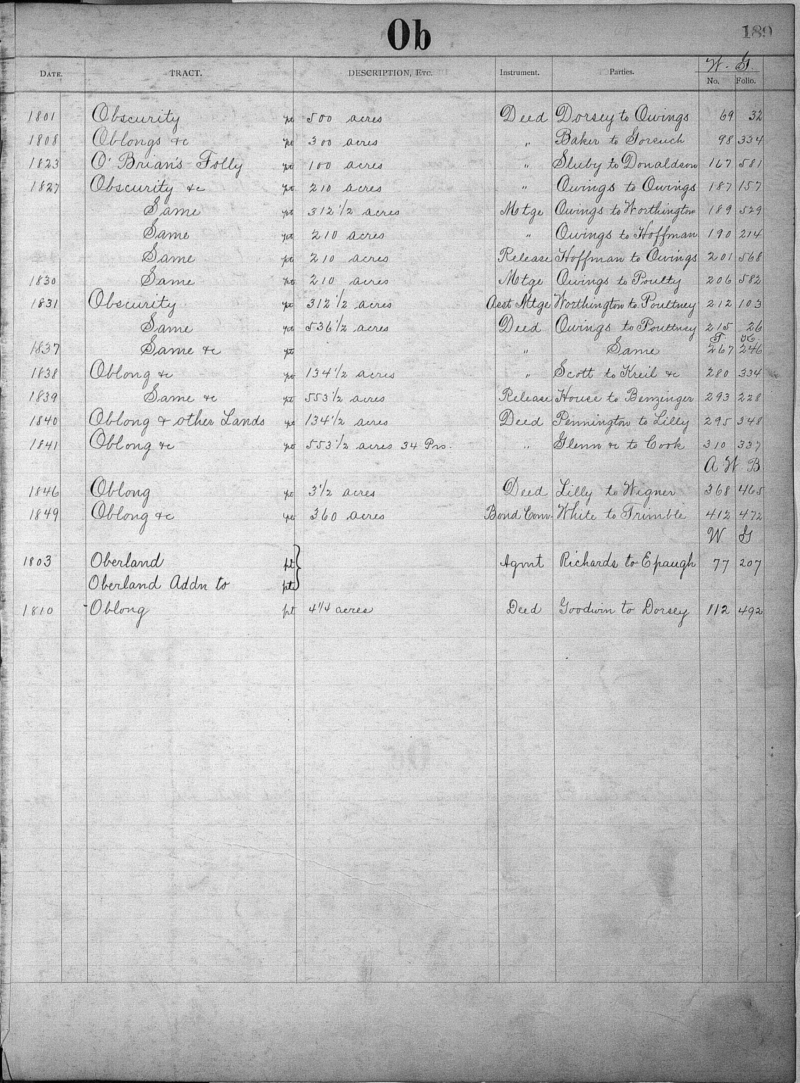 Ob
189
W. G.
DATE. TRACT. DESCRIPTION, ETC. Instrument. Parties. No. Folio.
1801 Obscurity pt 500 acres Deed Dorsey to Owings 69 32
1808 Oblongs &c pt 300 acres " Baker to Gorsuch 98 334
1823 O'Brian's Folly pt 100 acres " Sluby to Donaldson 167 581
1827 Obscurity &c pt 210 acres " Owings to Owings 187 157
Same pt 312 1/2 acres Mtge Owings to Worthington 189 529
Same pt 210 acres " Owings to Hoffman 190 214
Same pt 210 acres Release Hoffman to Owings 201 568
1830 Same pt 210 acres Mtge Owings to Poulty 206 582
1831 Obscurity pt 312 1/2 acres Asst Mtge Worthington to Poultney 212 103
Same pt 536 1/2 acres Deed Owings to Poultney 215 26
T K
1837 Same &c pt " Same 267 246
1838 Oblong &c pt 134 1/2 acres " Scott to Kreil &c 280 334
1839 Same &c pt 553 1/2 acres Release House to Benzinger 293 228
1840 Oblong & other Lands pt 134 1/2 acres Deed Pennington to Lilly 295 348
1841 Oblong &c pt 553 1/2 acres 34 Prs. " Glenn &c to Cook 310 337
A W B
1846 Oblong pt 3 1/2 acres Deed Lilly to Wigner 368 465
1849 Oblong &c pt 360 acres Bond Conv. White to Trimble 412 472
W G
1803 Oberland pt Agmt Richards to Epaugh 77 207
Oberland Addn to pt
1810 Oblong pt 4 1/4 acres Deed Goodwin to Dorsey 112 492